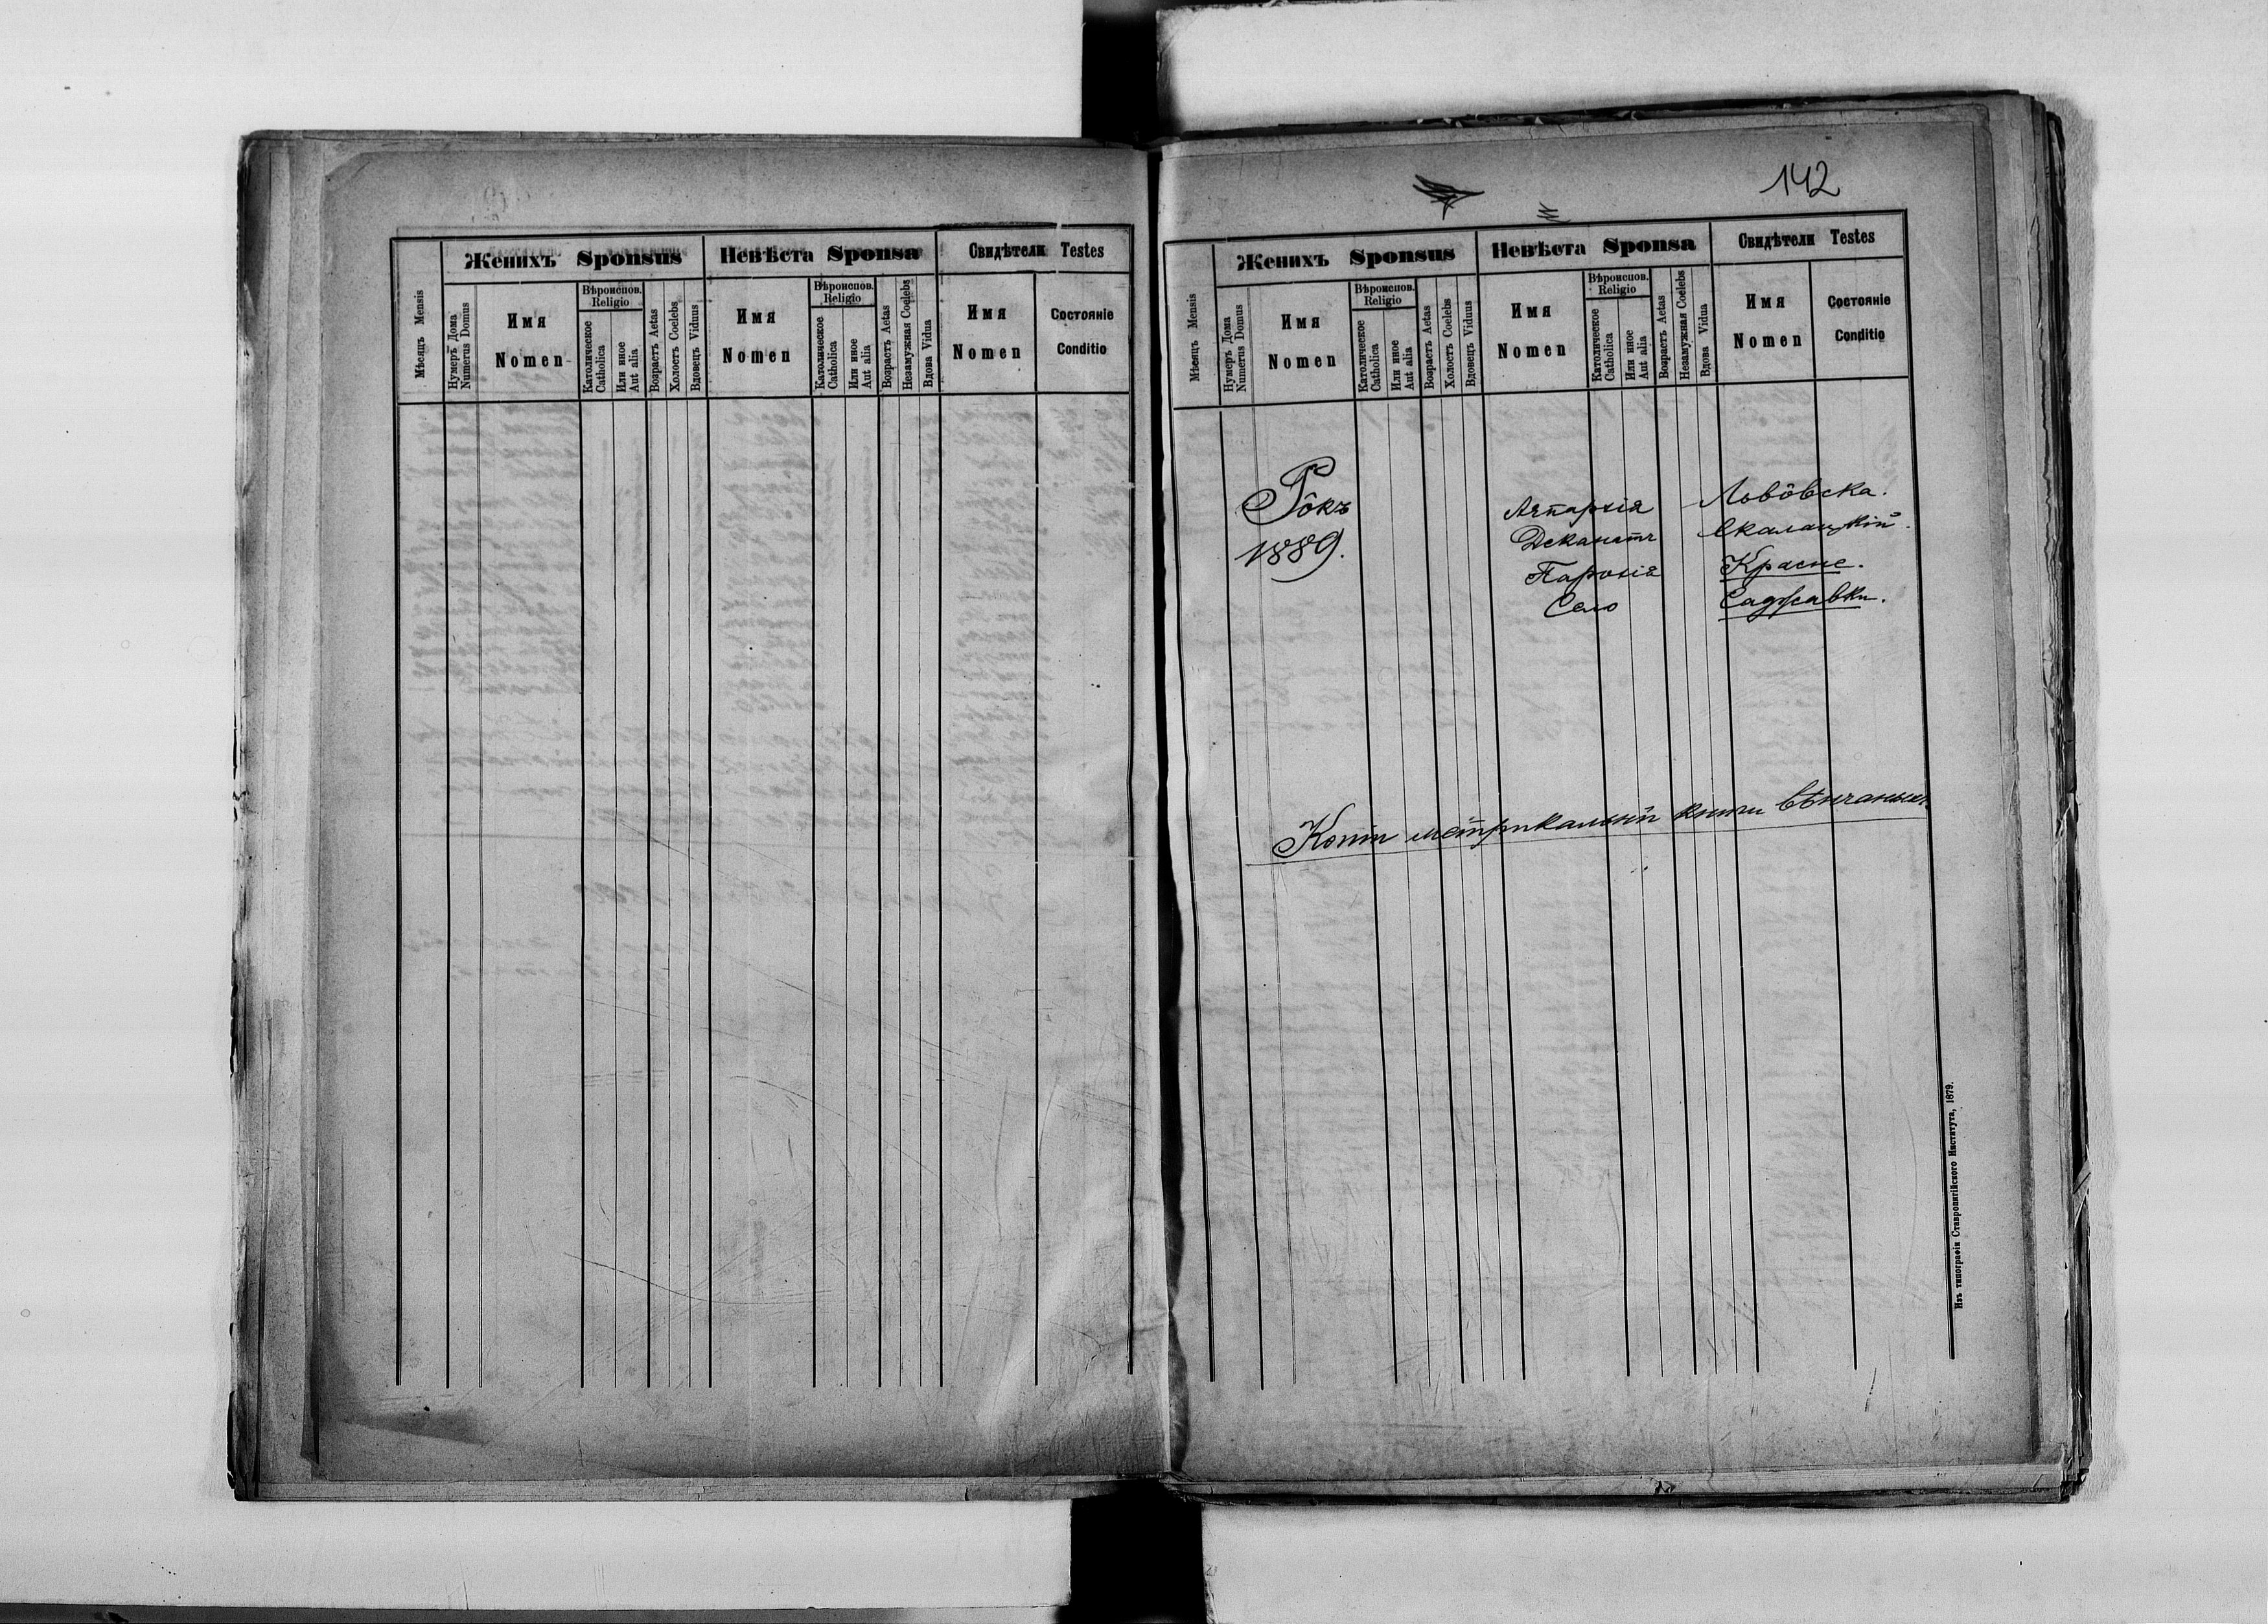 Женихъ Sponsus
Невѣста Sponsa
Свидѣтели Testes
Мѣсяцъ Mensis
Нумеръ Дома
Numerus Domus
Имя
Nomen
Вѣроиспов.
Religio
Католическое
Catholica
Или иное
Aut alia
Возрастъ Aetas
Холостъ Coelebs
Вдовецъ Viduus
Имя
Nomen
Вѣроиспов.
Religio
Католическое
Catholica
Или иное
Aut alia
Возрастъ Aetas
Незамужная Coelebs
Вдова Vidua
Имя
Nomen
Состояніе
Conditio
142
Женихъ Sponsus
Невѣста Sponsa
Свидѣтели Testes
Мѣсяцъ Mensis
Нумеръ Дома
Numerus Domus
Имя
Nomen
Вѣроиспов.
Religio
Католическое
Catholica
Или иное
Aut alia
Возрастъ Aetas
Холостъ Coelebs
Вдовецъ Viduus
Имя
Nomen
Вѣроиспов.
Religio
Католическое
Catholica
Или иное
Aut alia
Возрастъ Aetas
Незамужная Coelebs
Вдова Vidua
Имя
Nomen
Состояніе
Conditio
Рôкъ
1889.
Львôвска.
Деканатъ Скалацкій.
Парохія Красне.
Село Саджавки.
Копія метрикальной книги вѣнчаныхъ
Изъ типографіи Ставропигійского Института, 1879.